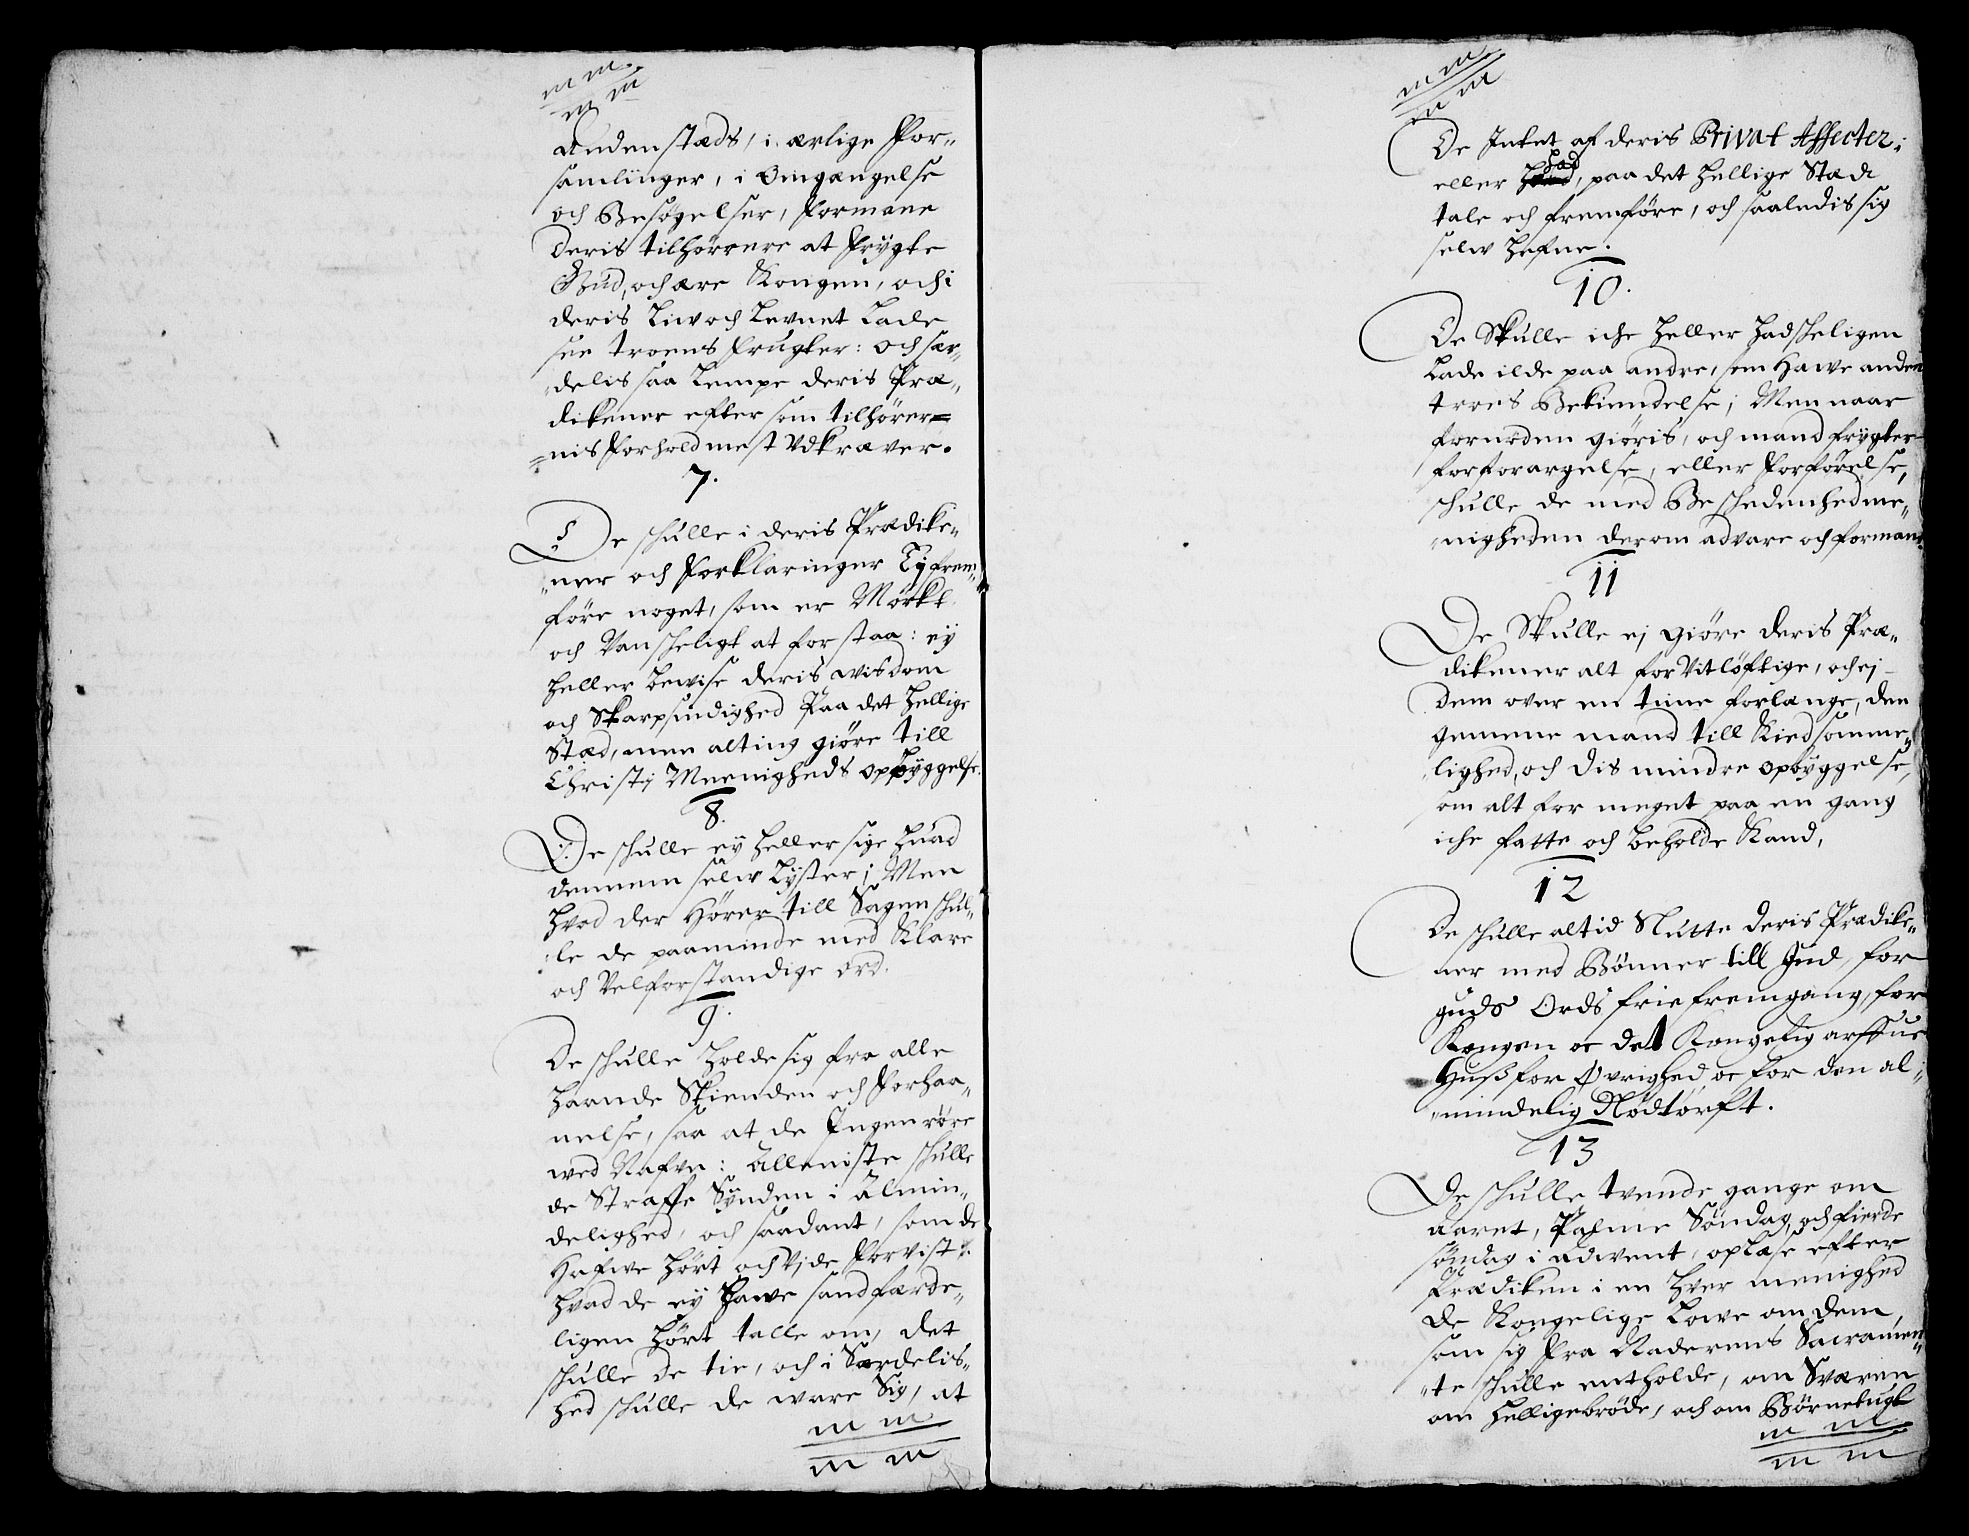 m m.
m m
Andenstæds, i ærlige For„
samlinger, i Omgængelse
och Besøgelser, formane
deris tilhørrere at frygte
Gud, och ære Kongen, och i
deris Liw och Levnet Lade
see troens frugter: och sær„
„delis saa Lempe deris Præ„
dikener efter som tilhører=
=nis forhold mest udkræver.
7.
De schulle i deris Prædike„
„ner och forklaringer Ey frem„
føre noget, som er Mørkt
och Vanscheligt at forstaa: ey
heller bewise deris wisdom
och Skarpsindighed Paa det hellige
Stæd, men alting giøre till
Christi Meenigheds opbyggelse.
8.
De schulle ey heller sige huad
dennem selw Lyster; Men
hvad der Hører till Sagen schul„
„le de paaminde med Klare
och Velforstandige ord.
9.
De schulle holde sig fra alle
haande Skienden och forhaa„
nelse, saa at de Ingen røre
wed Nafvn: Alleniste schulle
de Straffe Synden i Almin„
delighed, och saadant, som de
Hafwe hørt och Vide forvist:
hvad de ey hawe sandfærde„
ligen hørt talle om, det
schulle de tie, och i Særdelis„
hed schulle de ware Sig, at
m m
m m
m m.
m m
De Intet af deris Privat Affecter;
had
eller, paa det hellige Stæd
tale och fremføre, och saaledis sig
selw hefne.
10.
De Skulle iche heller hadscheligen
Lade ilde paa andre, som Hawe anden
troes Bekiendelse; Men naar
fornøden giøris, och mand frygter
for forargelse, eller forførelse,
schulle de med Beschedenhed me„
„nigheden derom advare och formane.
11
De Skulle ej giøre deris Præ„
dikener alt for Vitløftige, och ej
dem over en time forlænge, den
gemene mand till Kiedsomme„
„lighed, och dis mindre opbyggelse,
som alt for meget paa en gang
iche fatte och beholde Kand,
12
De schulle altid Slutte deris Prædike„
ner med Bønner till Gud, for
guds Ords frie fremgang, for
Kongen oc det Kongelig arffue
Huss for Øvrighed, oc for den al„
„mindelig Nødtørft.
13
De schulle tvende gange om
aaret, Palme Søndag, och fierde
søndag i Adwent, oplæse efter
Prædiken i en hver menighed
de Kongelige Lowe om dem,
som sig fra Naderens Sacramen„
„te schulle entholde, om Sværen
om helligebrøde, och om Børnetugt
m m
m m